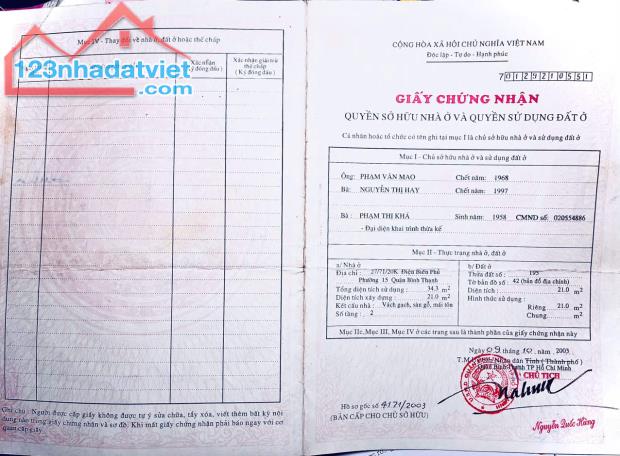 Mục IV - Thay đổi về nhà ở, đất ở hoặc thế chấp
Xác nhận
(Ký đóng dấu)
Xác nhận giải trừ
thế chấp
(Ký đóng dấu)
123nhadatviet.com
Ghi chú : Người được cấp giấy không được tự ý sửa chữa, tẩy xóa, viết thêm bất kỳ nội
dung nào trong giấy chứng nhận và sơ đồ. Khi mất giấy chứng nhận phải báo ngay với cơ
quan cấp giấy.
CỘNG HÒA XÃ HỘI CHỦ NGHĨA VIỆT NAM
Độc lập - Tự do - Hạnh phúc
7 0 1 2 9 2 1 0 5 5 1
GIẤY CHỨNG NHẬN
QUYỀN SỞ HỮU NHÀ Ở VÀ QUYỀN SỬ DỤNG ĐẤT Ở
Cá nhân hoặc tổ chức có tên ghi tại mục I là chủ sở hữu nhà ở và sử dụng đất ở
Mục I - Chủ sở hữu nhà ở và sử dụng đất ở
Ông: PHẠM VĂN MAO Chết năm: 1968
Bà: NGUYỄN THỊ HAY Chết năm: 1997
Bà : PHẠM THỊ KHÁ Sinh năm: 1958 CMND số: 020554886
- Đại diện khai trình thừa kế
Mục II - Thực trạng nhà ở, đất ở
a/ Nhà ở
Địa chỉ : 27/71/20K Điện Biên Phủ
Phường 15 Quận Bình Thạnh
Tổng diện tích sử dụng : 34.3 m2
Diện tích xây dựng : 21.0 m2
Kết cấu nhà : Vách gạch, sàn gỗ, mái tôn
Số tầng : 2
b/ Đất ở
Thửa đất số: 195
Tờ bản đồ số : 42 (bản đồ địa chính)
Diện tích : 21.0 m2
Hình thức sử dụng :
Riêng 21.0 m2
Chung m2
Mục IIc, Mục III, Mục IV ở các trang sau là thành phần của giấy chứng nhận này
Ngày 09 tháng 10 năm 2003
CHỦ TỊCH
Hồ sơ gốc số 4171/2003
(BẢN CẤP CHO CHỦ SỞ HỮU)
Nguyễn Quốc Hùng